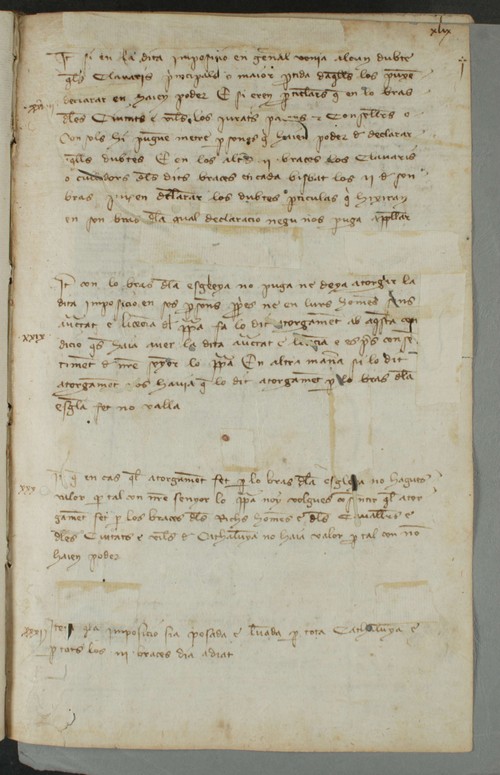 xlix
It si en la dita imposicio en gñal venia algun dubte
qls Clavaris principals o maior ptida daqlls los puxe
xxviii
declarar en haien poder E si eren pticlars q en lo bras
dles Ciutats e viles los jurats pahers e Consellers o
Consols hi pugue metre psones q haien poder de declarar
qlls dubtes E en los altres ii braces los Clavaris
o cullidors dls dits braces en cada bisbat los ii de son
bras puxen declarar los dubtes pticulas q hixiran
en son bras dla qual declaracio negu nos puga appellar
It con lo bras dla esgleya no puga ne deya atorgar la
dita imposicio en ses psones ppies ne en lurs homes sens
auctat e licecia del ppa fa lo dit atorgamet ab aqsta con
xxix
dicio qs haia aver la dita auctat e licecia e expes conse
timet d nre senyor lo ppa En altra mana si lo dit
atorgamet nos havia q lo dit atorgamet p lo bras dla
esgla fet no valla
xxx
It q en cas ql atorgamet fet p lo bras dla esgleya no hagues
valor p tal con nre senyor lo ppa noy volgues cosentir ql ator
gamet fet p los braces dls Richs homes e dls Cavallers e
dles Ciutats e viles d Cathalunya no haia valor p tal con no
haien poder
xxxi
Item qla imposicio sia posada e levada p tota Cathalunya e
p tots los iii braces dia adiat